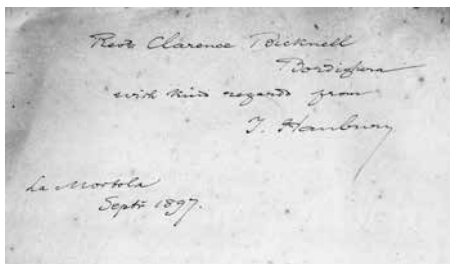 Revd Clarence Bicknell
Bordighera
with kind regards from
T. Hanbury
La Mortola
Septr 1897.